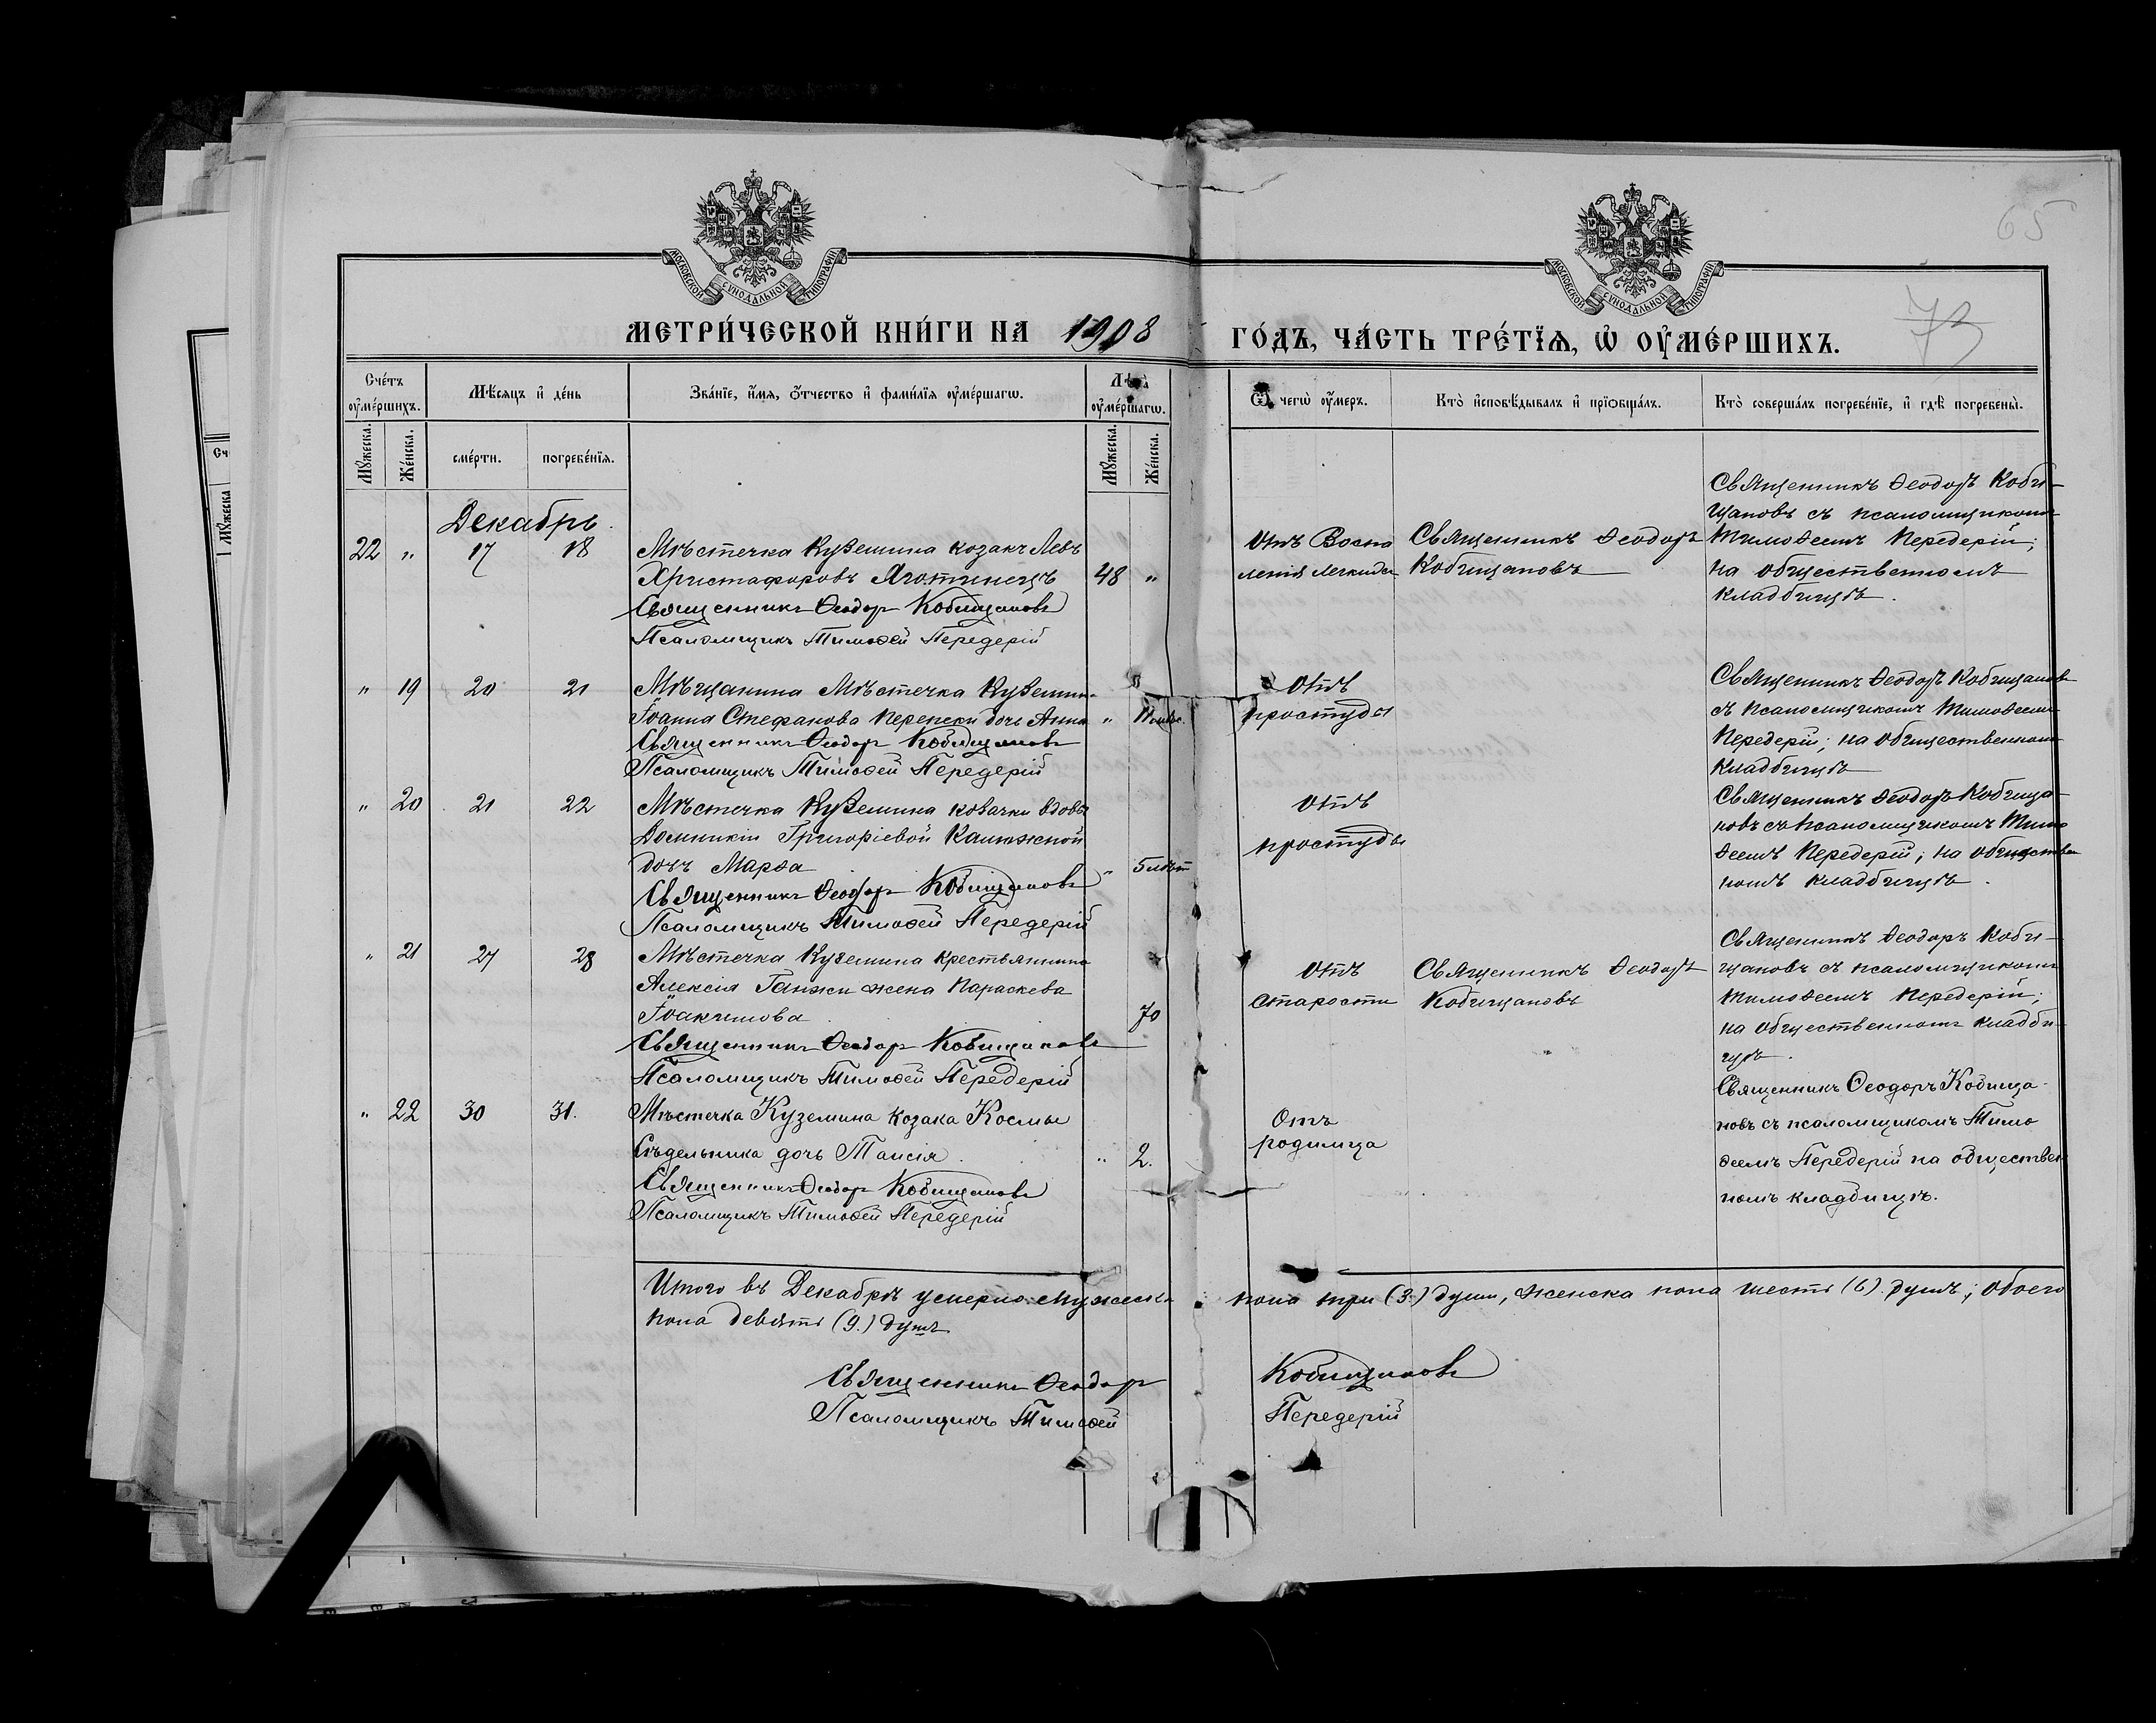 65
73
МОСКОВСКОЙ СУНОДАЛЬНОЙ ТИПОГРАФІИ.
МОСКОВСКОЙ СУНОДАЛЬНОЙ ТИПОГРАФІИ.
МЕТРИ́ЧЕСКОЙ КНИ́ГИ НА 1908 ГО́ДЪ, ЧА́СТЬ ТРЕ́ТЇѦ, Ѡ҆ ОУ҆МЕ́РШИХЪ.
Сче́тъ оу҆ме́ршихъ.
Мѣ́сяцъ и҆ де́нь
Зва́нїе, и҆́мя, ѻ҆́тчество и҆ фами́лїя оу҆ме́ршагѡ.
Лѣ̀та оу҆ме́ршагѡ.
Ѿ чегѡ̀ оу҆́меръ.
Кто̀ и҆сповѣ́дывалъ и҆ прїѡбща́лъ.
Кто̀ соверша́лъ погребе́нїе, и҆ гдѣ̀ погребены̀.
Мꙋ́жеска.
Же́нска.
сме́рти.
погребе́нїя.
Мꙋ́жеска.
Же́нска.
Декабрь.
22 „ 17 18
Мѣстечка Куземина козакъ Левъ
Христофоровъ Яготинецъ
48 „
Священникъ Ѳеодоръ Кобищановъ
Псаломщикъ Тимоѳей Передерій
Отъ Воспа
ленія легкихъ
Священникъ Ѳеодоръ
Кобищановъ
Священникъ Ѳеодоръ Коби-
щановъ съ псаломщикомъ
Тимоѳеемъ Передерій;
на общественномъ
кладбищѣ.
„ 19 20 21
Мѣщанина Мѣстечка Куземин-
Іоанна Стефанова Перепеки дочь Анна
„
Священникъ Ѳеодоръ Кобищановъ
Псаломщикъ Тимоѳей Передерій
Отъ
простуды
Священникъ Ѳеодоръ Кобищановъ
съ псаломщикомъ Тимоѳеемъ
Передерій; на общественномъ
кладбищѣ
„ 20 21 22
Мѣстечка Куземина козачки вдовы
Домникіи Григоріевой
дочь Марѳа
„ 5 лѣт
Священникъ Ѳеодоръ Кобищановъ
Псаломщикъ Тимоѳей Передерій
Отъ
простуды
Священникъ Ѳеодоръ Кобища-
новъ съ псаломщикомъ Тимо
ѳеемъ Передерій; на обществен
номъ кладбищѣ.
„ 21 27 28
Мѣстечка Куземина крестьянина
Алексія Ганжи жена Параскева
Іоакимова
70
Священникъ Ѳеодоръ Кобищановъ
Псаломщикъ Тимоѳей Передерій
Отъ
старости
Священникъ Ѳеодоръ
Кобищановъ
Священникъ Ѳеодоръ Коби-
щановъ съ псаломщикомъ
Тимоѳеемъ Передерій;
на общественномъ кладби-
щѣ.
„ 22 30 31.
Мѣстечка Куземина козака Космы
Сѣдельника дочь Таисія.
„ 2.
Священникъ Ѳеодоръ Кобищановъ
Псаломщикъ Тимоѳей Передерій
Отъ
родимца
Священникъ Ѳеодоръ Кобища-
новъ съ псаломщикомъ Тимо
ѳеемъ Передерій на обществен
номъ кладбищѣ.
Итого въ Декабрѣ умерло: мужеска пола три (3.) души, женска пола шесть (6). душъ; обоего
пола девять (9.) душъ
Священникъ Ѳеодоръ Кобищановъ
Псаломщикъ Тимоѳей Передерій